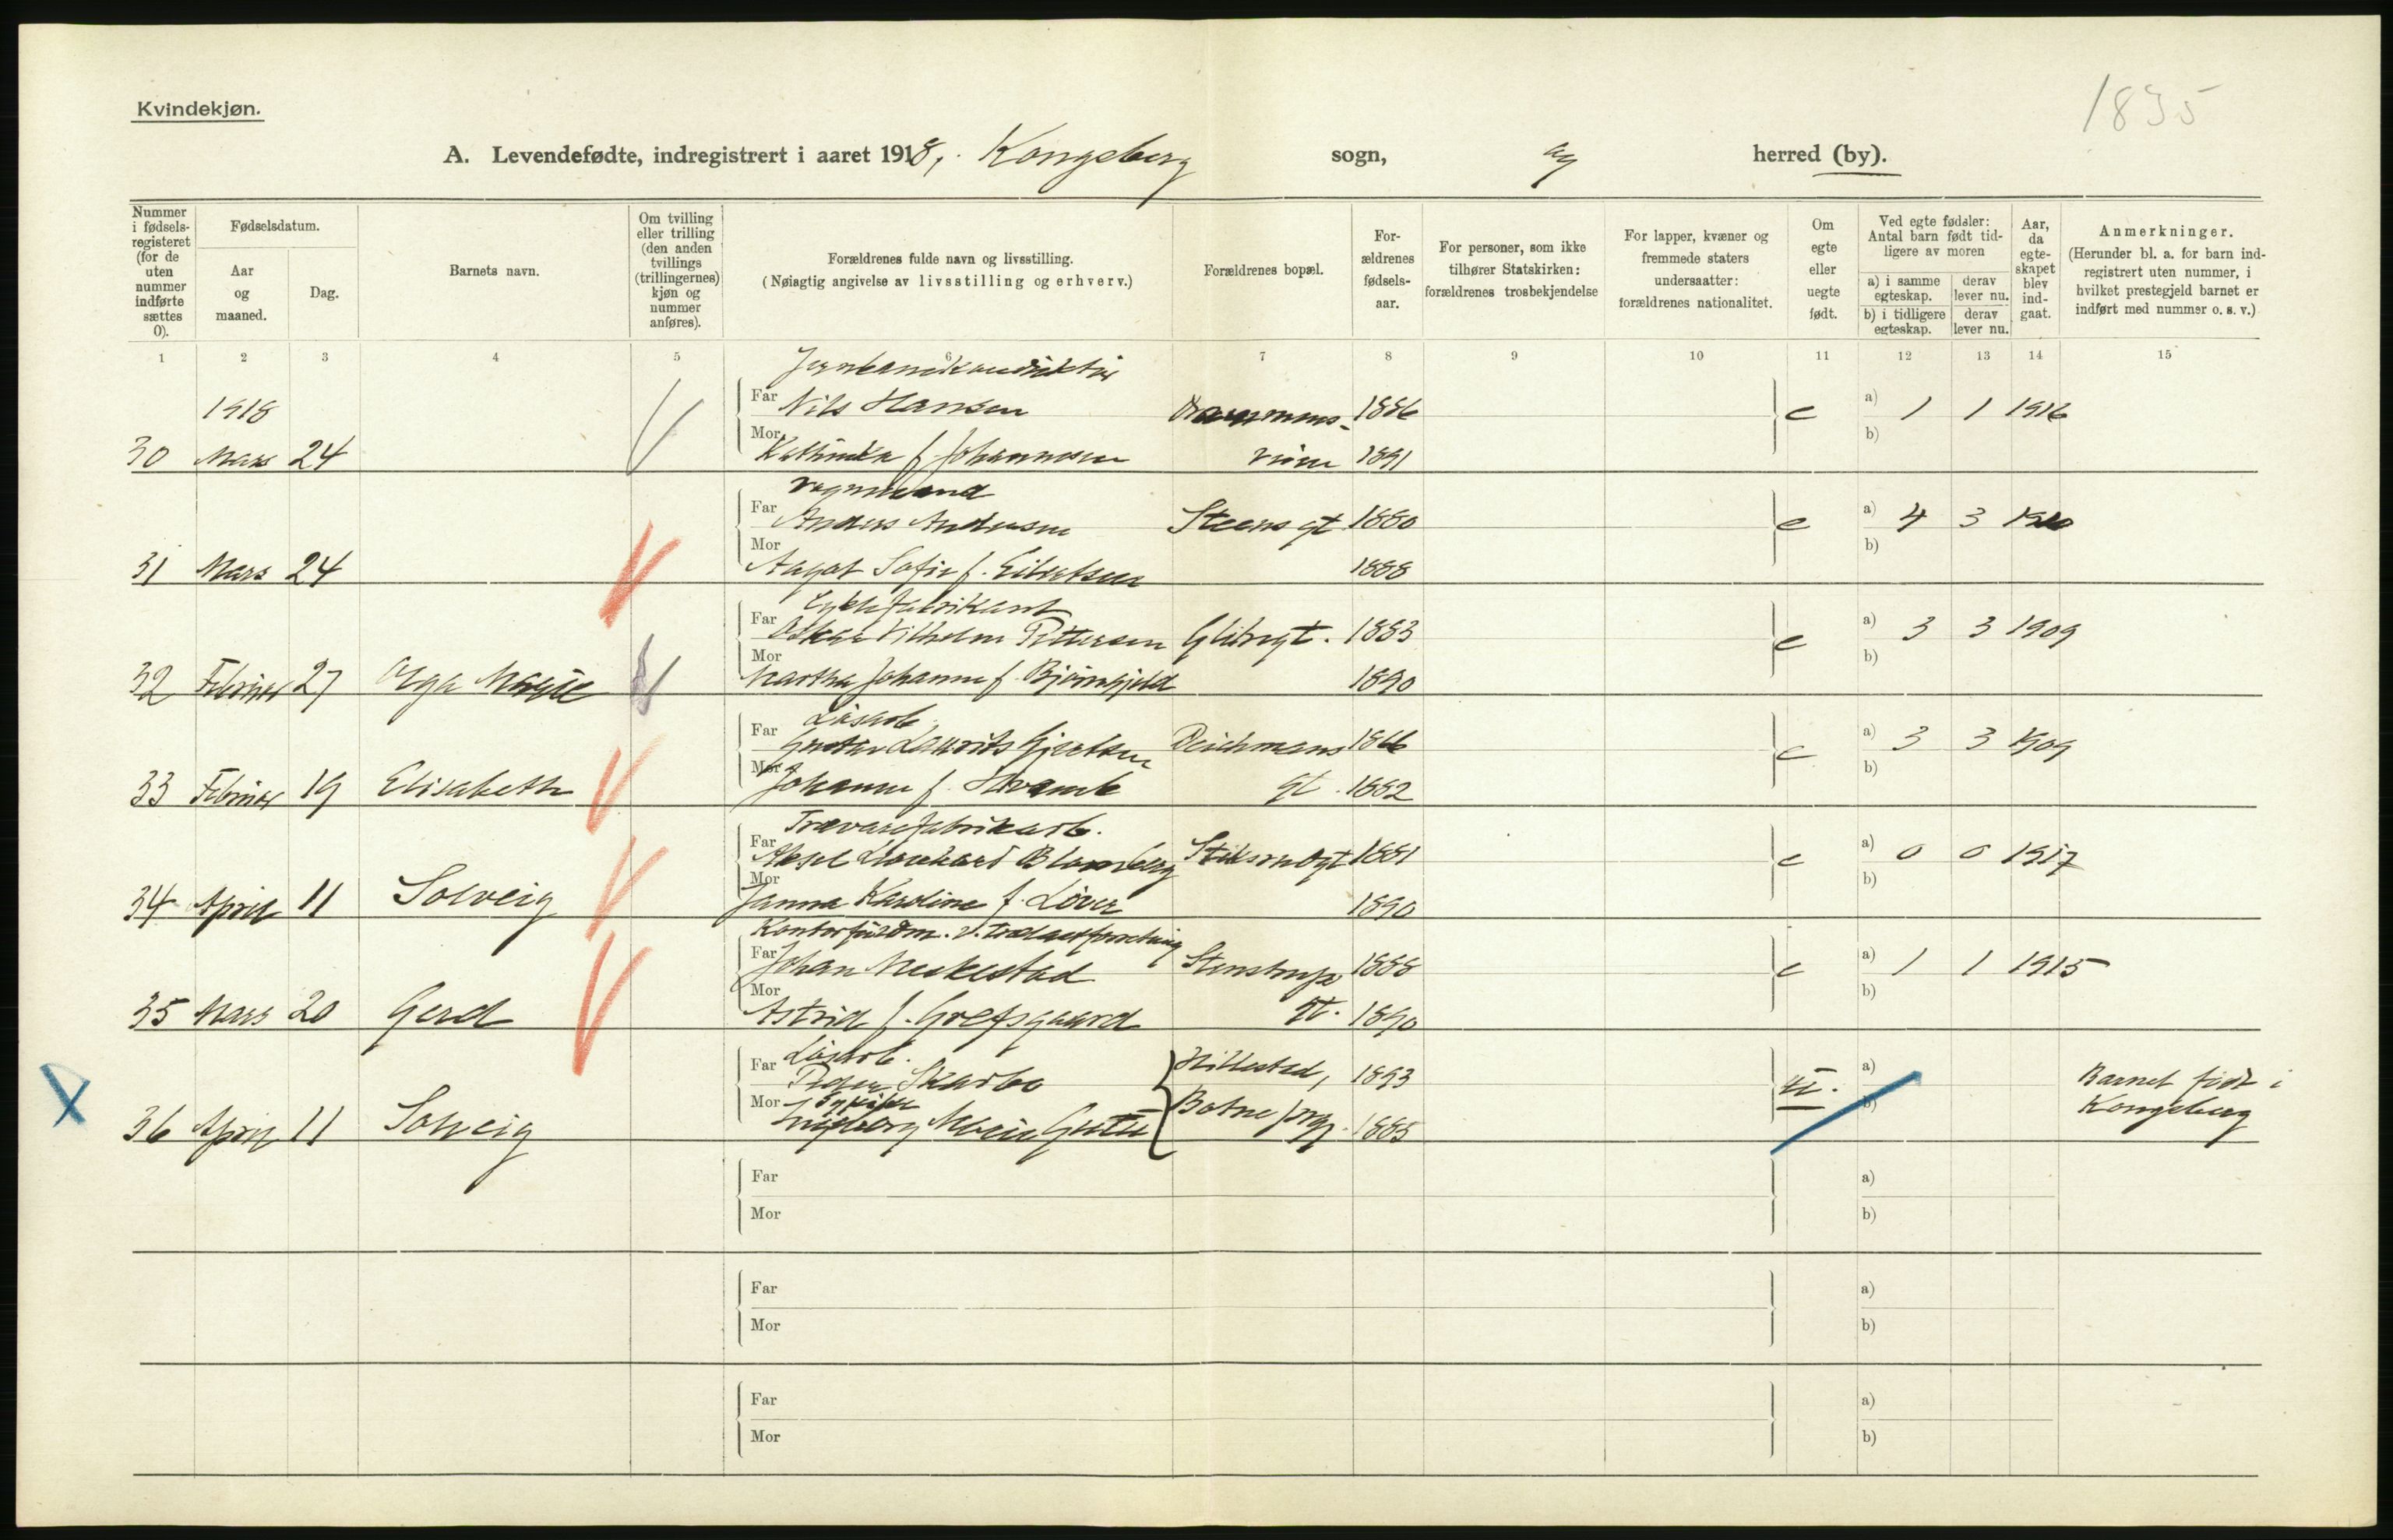 1835
Kvindekjøn.
A. Levendefødte, indregistrert i aaret 1918, Kongsberg sogn, og herred (by).
Nummer i fødselsregisteret (for de uten nummer indførte sættes 0).
Fødselsdatum.
Aar og maaned.
Dag.
Barnets navn.
Om tvilling eller trilling (den anden tvillings (trillingernes) kjøn og nummer anføres).
Forældrenes fulde navn og livsstilling.
(Nøiagtig angivelse av livsstilling og erhverv.)
Forældrenes bopæl.
Forældrenes fødselsaar.
For personer, som ikke tilhører Statskirken: forældrenes trosbekjendelse
For lapper, kvæner og fremmede staters undersaatter: forældrenes nationalitet.
Om egte eller uegte født.
Ved egte fødsler: Antal barn født tidligere av moren
a) i samme egteskap. derav lever nu.
b) i tidligere egteskap. derav lever nu.
Aar, da egteskapet blev indgaat.
Anmerkninger.
(Herunder bl. a. for barn indregistrert uten nummer, i hvilket prestegjeld barnet er indført med nummer o. s. v.)
1 2 3 4 5 6 7 8 9 10 11 12 13 14 15
Jernbanekonduktør
1918 Far Nils Hansen Drammens- 1886 e a) 1 1 1916
b)
30 Mars 24 Mor Kathinka f. Johannesen veien 1891
Vognmand
Far Anders Andersen Steens gt 1880 e a) 4 3 1910
b)
31 Mars 24 Mor Aagot Sofie f. Eilertsen 1888
Cyklefabrikant
Far Oskar Vilhelm Pettersen Glitregt. 1883 e a) 3 3 1909
b)
32 Februar 27 Olga Marie Mor Martha Johanne f. 1890
Løsarb.
Far Gustav Laurits Gjertsen Deichmans 1866 e a) 3 3 1909
b)
33 Februar 19 Elisabeth Mor Johanne f. gt. 1882
Trævarefabrikarb.
Far Aksel Leonhard Blomberg 1881 e a) 0 0 1917
b)
34 April 11 Solveig Mor Janna Karoline f. Løver 1890
Kontorfuldm. v. trælastforretning
Far Johan Meskestad Stenstrups 1888 e a) 1 1 1915
b)
35 Mars 20 Gerd Mor Astrid f. Grefsgaard gt. 1890
Løsarb.
Far Peder Skarbo Hillestad, 1893 u. a) Barnet født i
Mor Sypike Botne prgj. b) Kongsberg
36 April 11 Solveig Ingeborg Marie 1885
Far a)
Mor b)
Far a)
Mor b)
Far a)
Mor b)